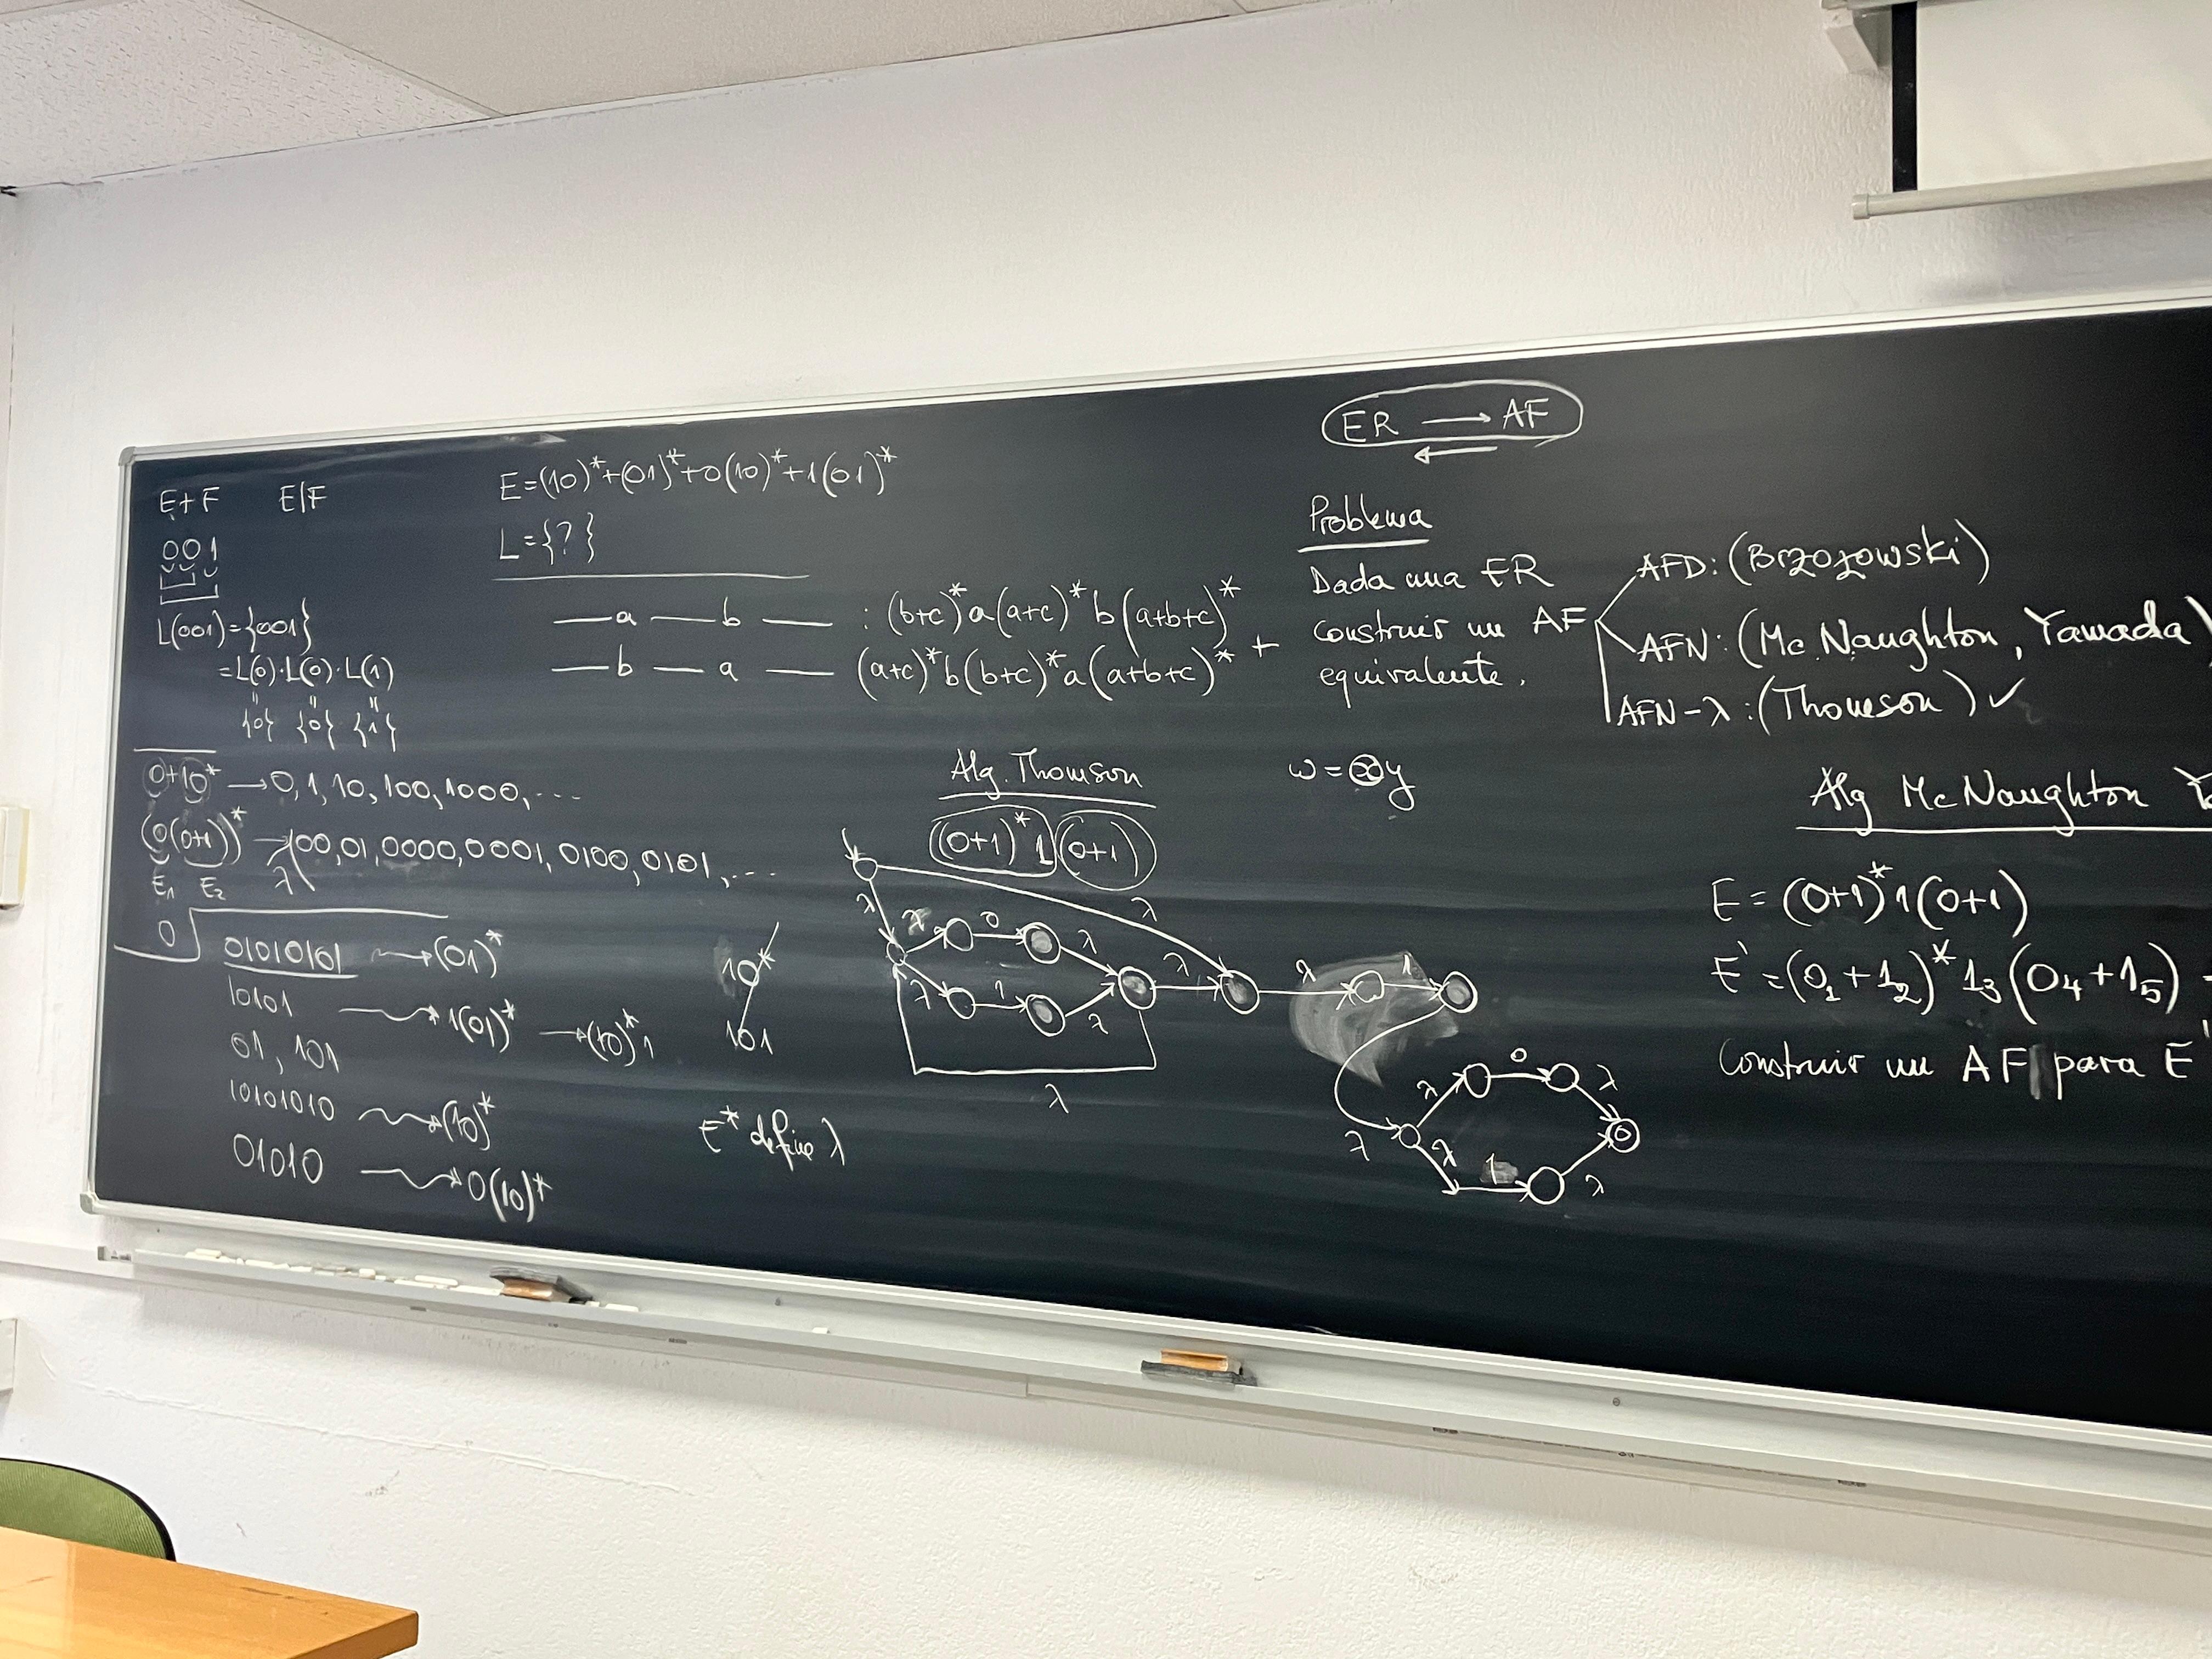 E+F E|F
001
L(001)={001}
=L(0)·L(0)·L(1)
{0} {0} {1}
0+10* →0, 1, 10, 100, 1000, ...
(0(0+1))* → 00, 01, 0000, 0001, 0100, 0101, ...
E₁ E₂ λ
0
01010101 → (01)*
10101 → 1(01)* → (10)*1
01, 101
10101010 → (10)*
01010 → 0(10)*
E=(10)*+(01)*+0(10)*+1(01)*
L={?}
—a —b — : (b+c)*a(a+c)*b(a+b+c)* +
—b —a — (a+c)*b(b+c)*a(a+b+c)*
10*
101
E* define λ
Alg. Thomson
(0+1)*1(0+1)
λ λ
λ 0 λ
λ 1 λ
λ λ 1
λ
λ λ 0 λ
λ 1 λ
ER → AF
←
Problema
Dada una ER
construir un AF
equivalente.
AFD: (Brzozowski)
AFN: (Mc Naughton, Yamada)
AFN-λ: (Thomson) ✓
ω = xy
Alg Mc Naughton
E = (0+1)*1(0+1)
E' = (0₁+1₂)*1₃(0₄+1₅)
Construir un AF para E'